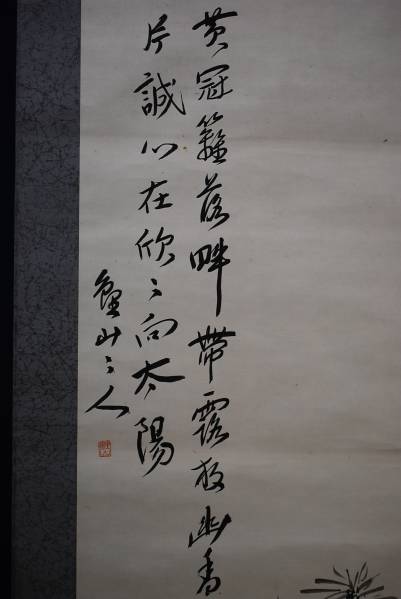 黄冠籬落畔帶露放幽香
片誠心在欣々向太陽
山々人